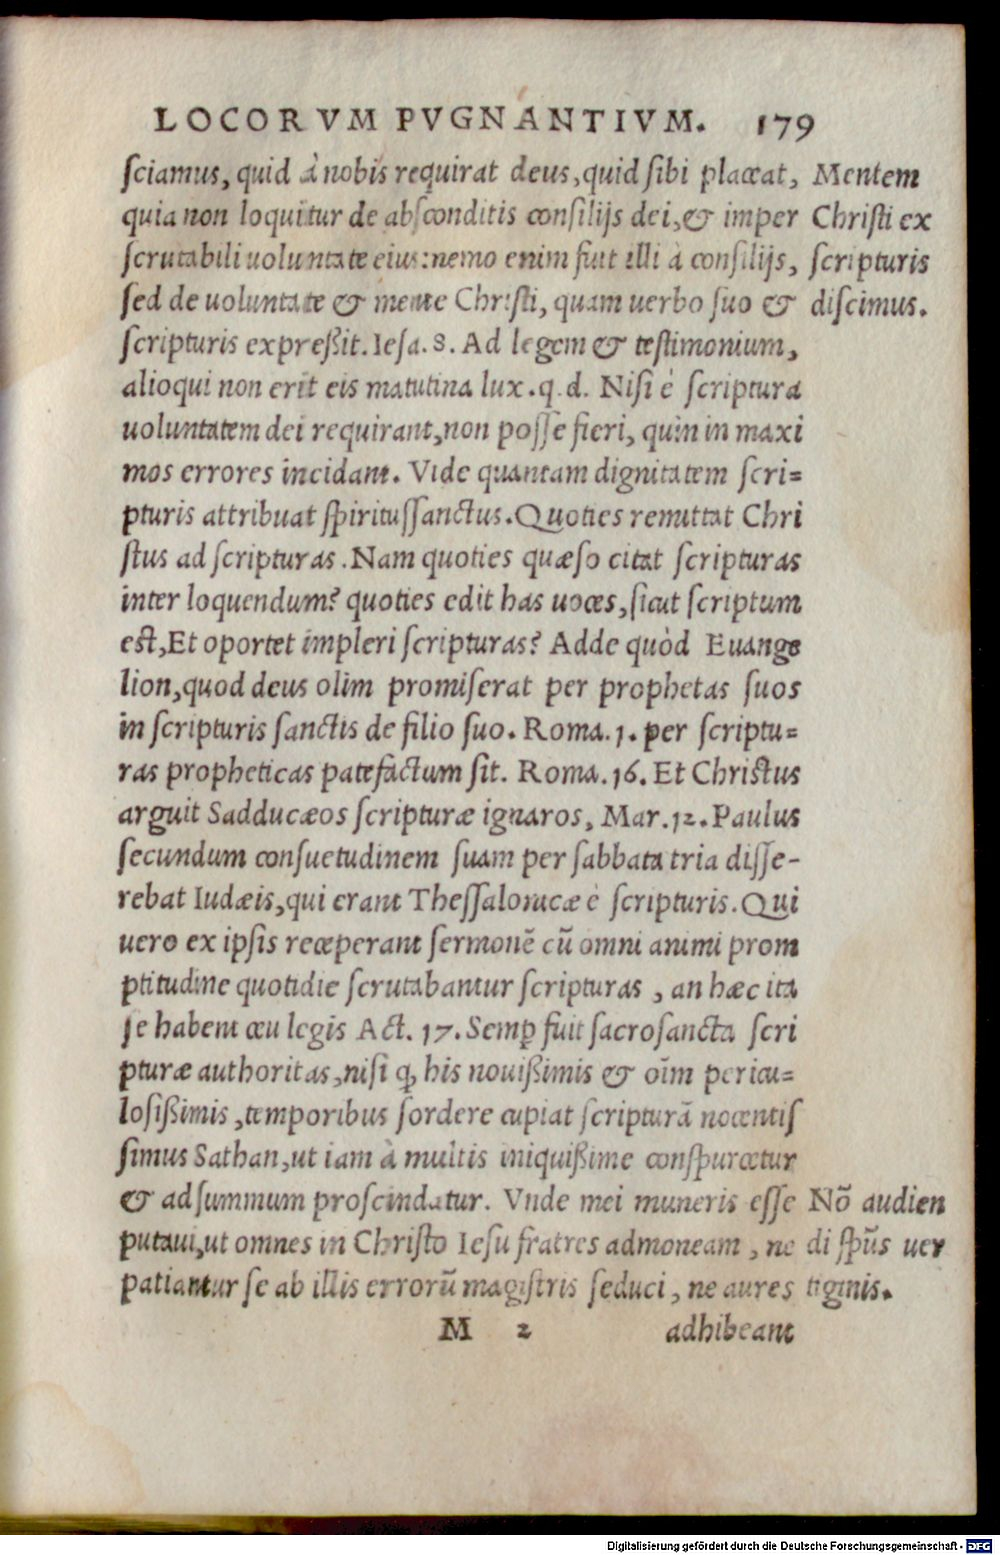 LOCORVM PVGNANTIVM. 179
sciamus, quid à nobis requirat deus, quid sibi placeat,
quia non loquitur de absconditis consilijs dei, & imper
scrutabili uoluntate eius: nemo enim fuit illi à consilijs,
sed de uoluntate & mente Christi, quam uerbo suo &
scripturis expreßit. Iesa. 8. Ad legem & testimonium,
alioqui non erit eis matutina lux. q. d. Nisi è scriptura
uoluntatem dei requirant, non posse fieri, quin in maxi
mos errores incidant. Vide quantam dignitatem scri=
pturis attribuat spiritussanctus. Quoties remittat Chri
stus ad scripturas. Nam quoties quæso citat scripturas
inter loquendum? quoties edit has uoces, sicut scriptum
est, Et oportet impleri scripturas? Adde quòd Euange
lion, quod deus olim promiserat per prophetas suos
in scripturis sanctis de filio suo. Roma. 1. per scriptu=
ras propheticas patefactum sit. Roma. 16. Et Christus
arguit Sadducæos scripturæ ignaros, Mar. 12. Paulus
secundum consuetudinem suam per sabbata tria disse-
rebat Iudæis, qui erant Thessalonicæ è scripturis. Qui
uero ex ipsis receperant sermonē cū omni animi prom
ptitudine quotidie scrutabantur scripturas, an hæc ita
se habent ceu legis Act. 17. Semꝑ fuit sacrosancta scri
pturæ authoritas, nisi ꝙ his nouißimis & oīm pericu=
losißimis, temporibus sordere cupiat scripturā nocentis
simus Sathan, ut iam à multis iniquißime conspurcetur
& ad summum proscindatur. Vnde mei muneris esse
putaui, ut omnes in Christo Iesu fratres admoneam, ne
patiantur se ab illis errorū magistris seduci, ne aures
M 2 adhibeant
Mentem
Christi ex
scripturis
discimus.
Nō audien
di spūs uer
tiginis.
Digitalisierung gefördert durch die Deutsche Forschungsgemeinschaft - DFG